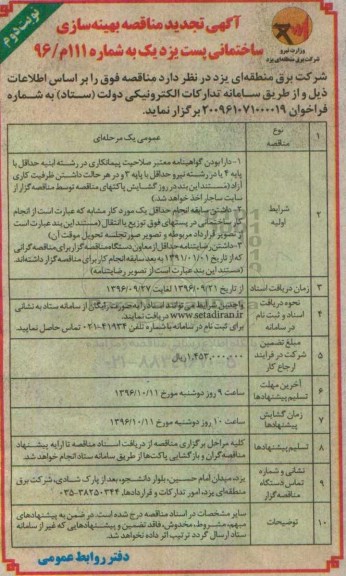 نوبت دوم
آگهی تجدید مناقصه بهینه‌سازی
ساختمانی پست یزد یک به شماره ۱۱۱م/۹۶
وزارت نیرو
شرکت برق منطقه‌ای یزد
شرکت برق منطقه‌ای یزد در نظر دارد مناقصه فوق را بر اساس اطلاعات
ذیل و از طریق سامانه تدارکات الکترونیکی دولت (ستاد) به شماره
فراخوان ۲۰۰۹۶۱۰۷۱۰۰۰۰۱۹ برگزار نماید.
۱
نوع
مناقصه
عمومی یک مرحله‌ای
۲
شرایط
اولیه
۱- دارا بودن گواهینامه معتبر صلاحیت پیمانکاری در رشته ابنیه حداقل با
پایه ۴ یا در رشته نیرو حداقل با پایه ۳ و در هر حالت داشتن ظرفیت کاری
آزاد (مستند این بند در روز گشایش پاکتهای مناقصه توسط مناقصه گزار از
سایت ساجار اخذ خواهد شد)
۲- داشتن سابقه انجام حداقل یک مورد کار مشابه که عبارت است از انجام
کار ساختمانی در پستهای فوق توزیع یا انتقال (مستند این بند عبارت است
از تصویر قرارداد مربوطه و تصویر صورتجلسه تحویل موقت آن)
۳- داشتن رضایتنامه حداقل از معاون دستگاه مناقصه گزار برای مناقصه گرانی
که از تاریخ ۱۳۹۱/۰۱/۰۱ به بعد سابقه انجام کار برای مناقصه گزار داشته‌اند
(مستند این بند عبارت است از تصویر رضایتنامه)
۳
زمان دریافت اسناد
از تاریخ ۱۳۹۶/۰۹/۲۱ لغایت ۱۳۹۶/۰۹/۲۷
۴
نحوه دریافت
اسناد و ثبت نام
در سامانه
واجدین شرایط می‌توانند اسناد را به صورت رایگان از سامانه ستاد به نشانی
www.setadiran.ir دریافت نمایند.
برای ثبت نام در سامانه با شماره تلفن ۴۱۹۳۴-۰۲۱ تماس حاصل نمایید.
۵
مبلغ تضمین
شرکت در فرایند
ارجاع کار
۱,۴۵۳,۰۰۰,۰۰۰ ریال
۶
آخرین مهلت
تسلیم پیشنهادها
ساعت ۹ روز دوشنبه مورخ ۱۳۹۶/۱۰/۱۱
۷
زمان گشایش
پیشنهادها
ساعت ۱۰ روز دوشنبه مورخ ۱۳۹۶/۱۰/۱۱
۸
تسلیم پیشنهادها
کلیه مراحل برگزاری مناقصه از دریافت اسناد مناقصه تا ارایه پیشنهاد
مناقصه‌گران و بازگشایی پاکت‌ها از طریق سامانه ستاد انجام خواهد شد.
۹
نشانی و شماره
تماس دستگاه
مناقصه گزار
یزد، میدان امام حسین، بلوار دانشجو، بعد از پارک شادی، شرکت برق
منطقه‌ای یزد، امور تدارکات و قراردادها، ۳۸۲۵۰۳۴۴-۰۳۵
۱۰
توضیحات
سایر مشخصات در اسناد مناقصه درج شده است. در ضمن به پیشنهادهای
مبهم، مشروط، مخدوش، فاقد تضمین و پیشنهادهایی که غیر از سامانه
ستاد ارسال گردد ترتیب اثر داده نخواهد شد.
دفتر روابط عمومی